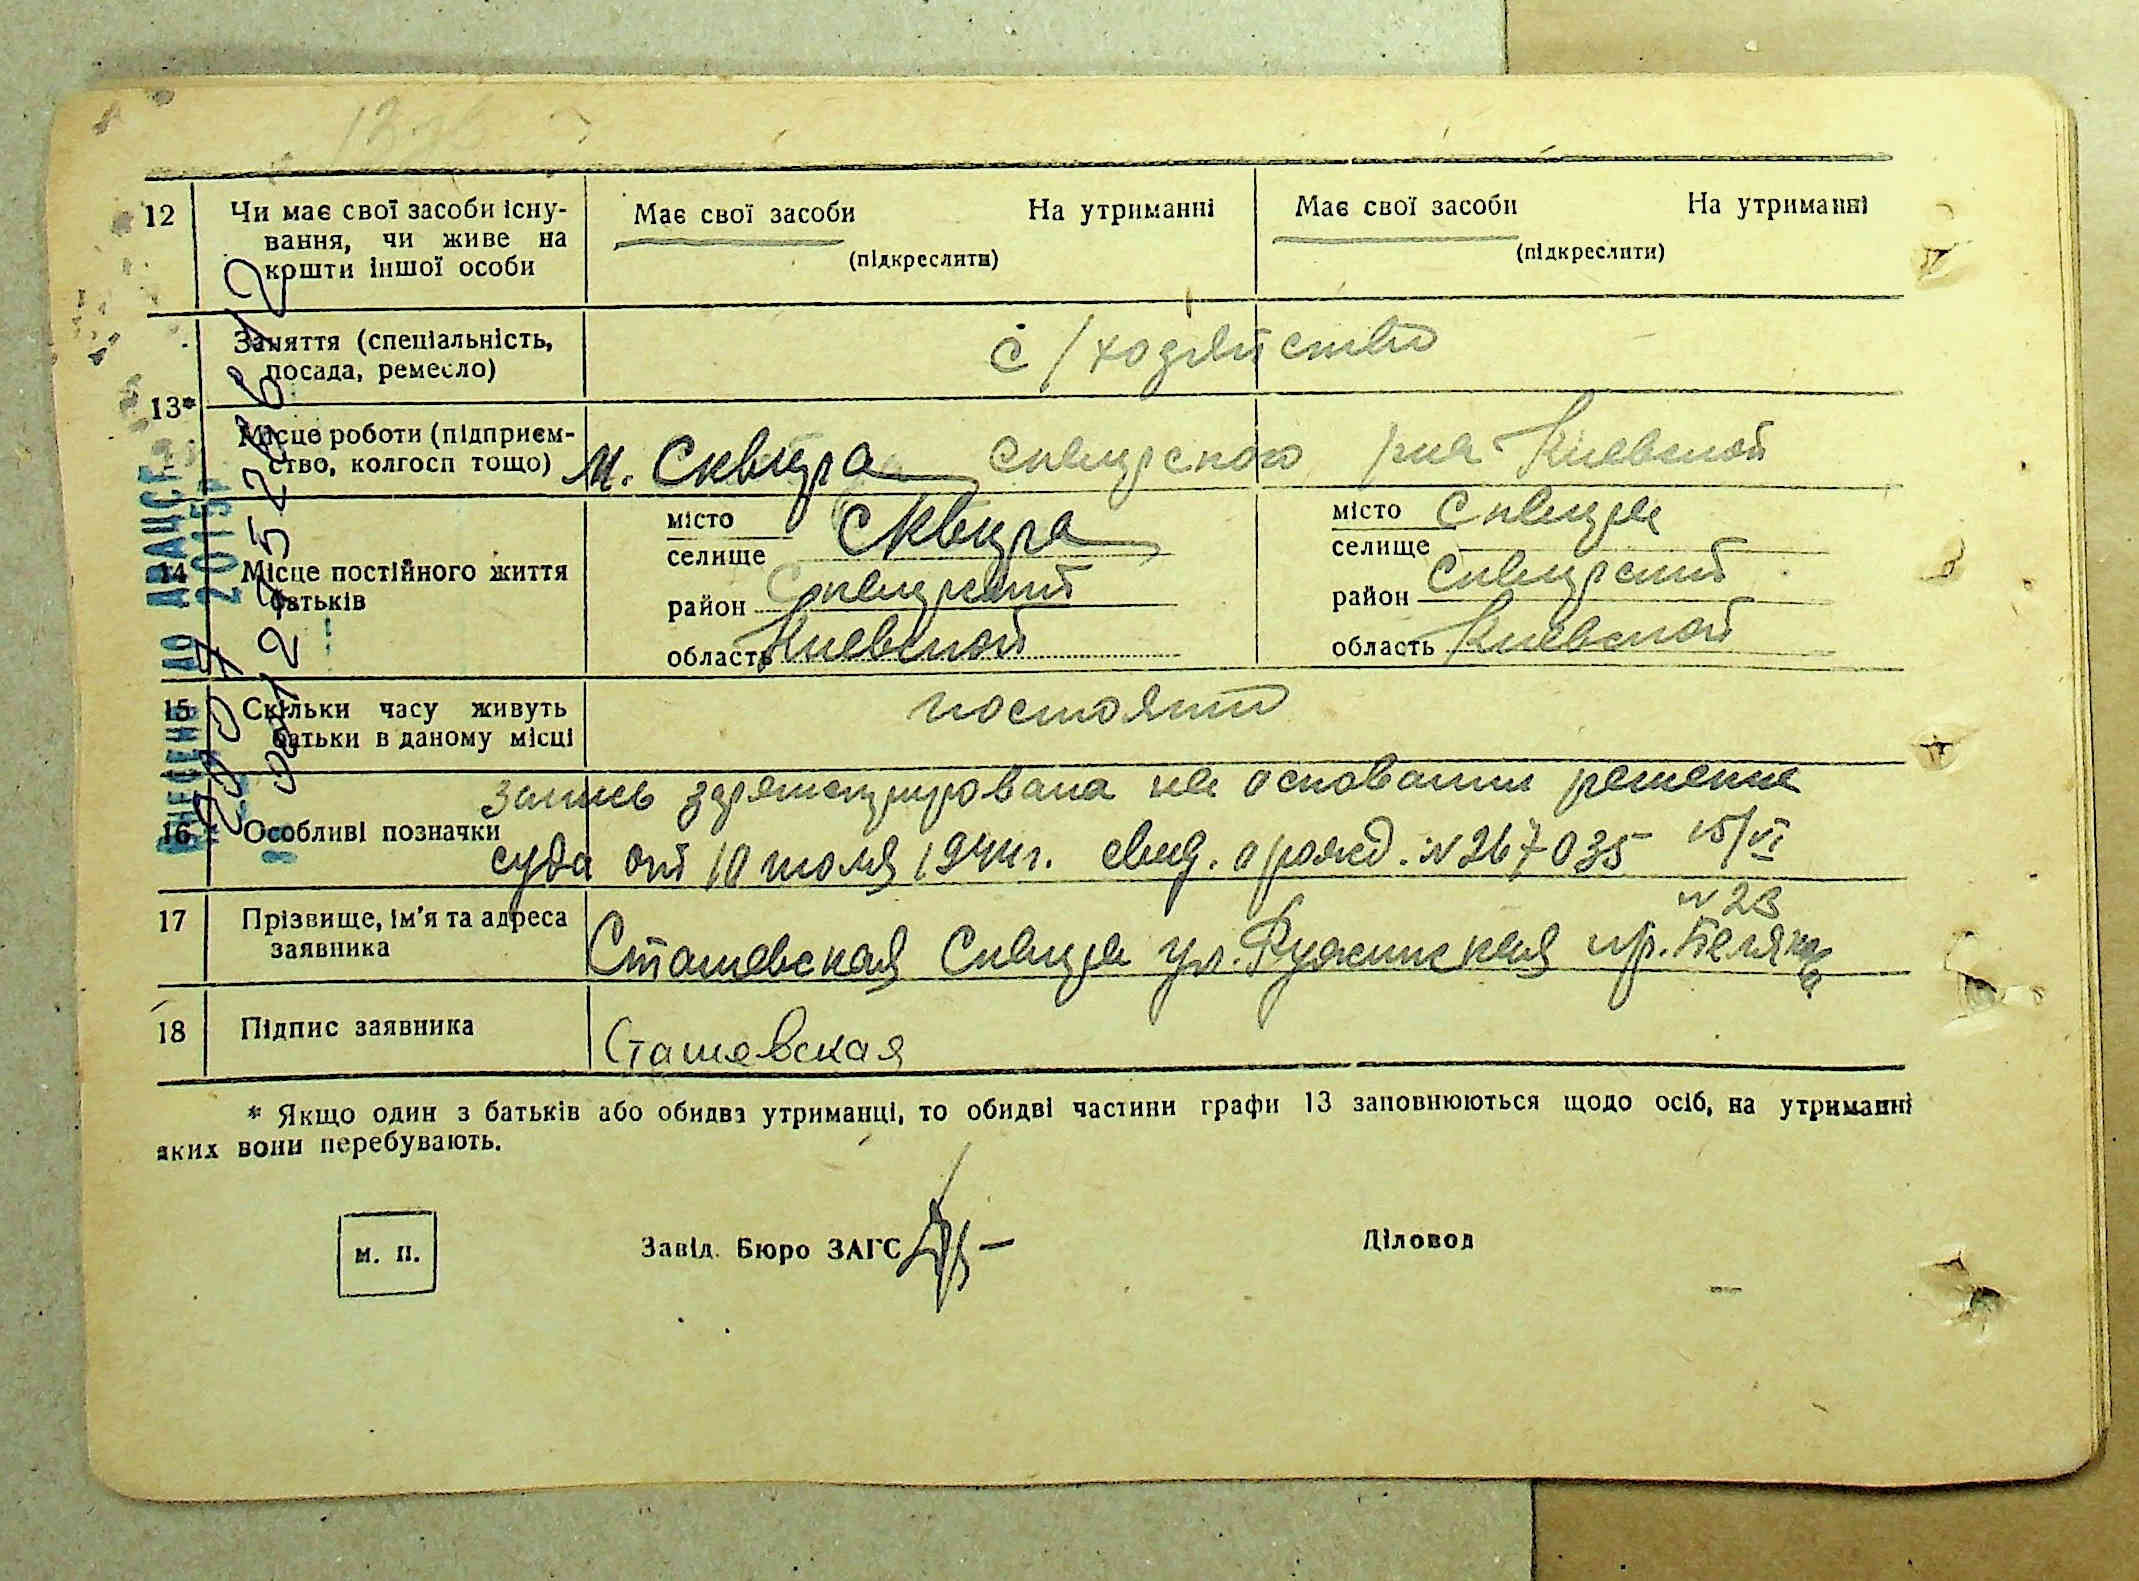 12 Чи має свої засоби існу- Має свої засоби На утриманні Має свої засоби На утриманні
вання, чи живе на
кошти іншої особи (підкреслити) (підкреслити)
Заняття (спеціальність, с/хозяйство
посада, ремесло)
13*
Місце роботи (підприєм- м. Сквира сквирского р-на Киевской
ство, колгосп тощо)
14 Місце постійного життя
батьків
місто Сквира місто Сквира
селище селище
район Сквирский район Сквирский
область Киевской область Киевской
15 Скільки часу живуть постоянно
батьки в даному місці
запись зарегистрирована на основании решение
16 Особливі позначки суда от 10 июля 1944г. свид. о рожд. № 267035 15/VI
№ 23
17 Прізвище, ім'я та адреса Сташевская Сквира ул. Ружинская пр.
заявника
18 Підпис заявника Сташевская
* Якщо один з батьків або обидва утриманці, то обидві частини графи 13 заповнюються щодо осіб, на утриманні
яких вони перебувають.
м. п. Завід. Бюро ЗАГС Діловод
ВНЕСЕНО ДО ДРАЦСГ
2015р